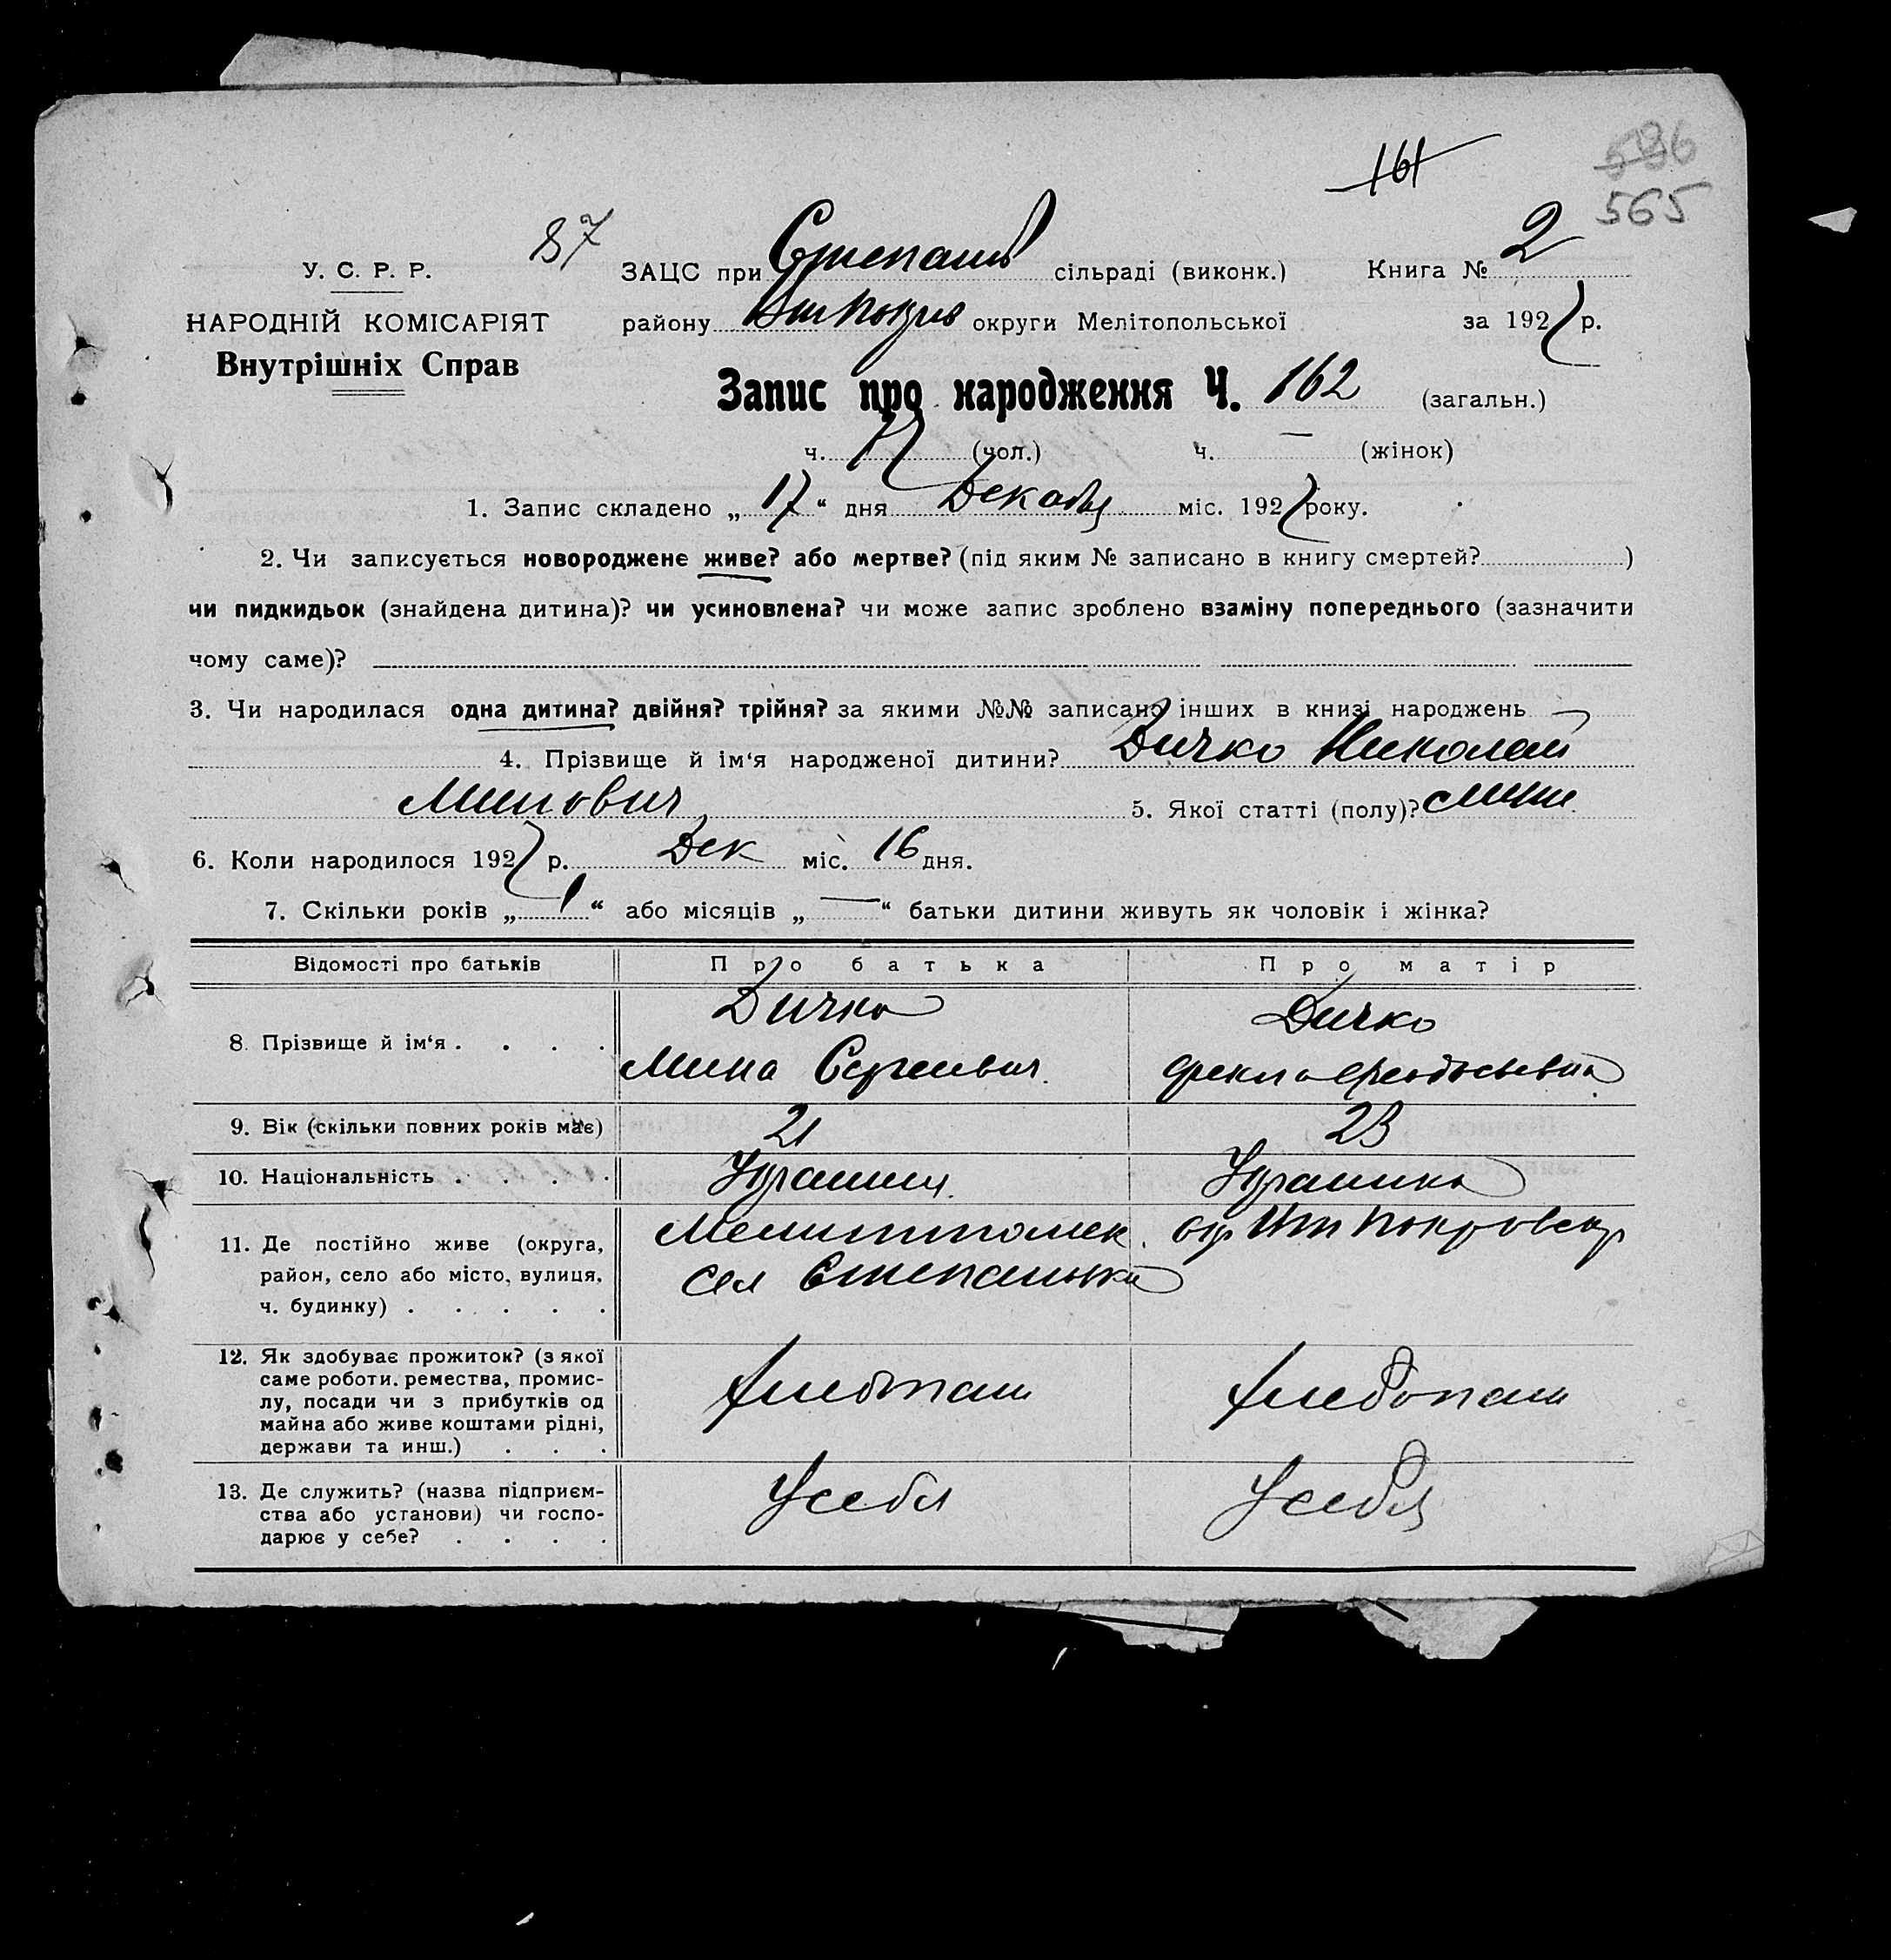 161
596
565
87
У. С. Р. Р.
НАРОДНІЙ КОМІСАРІЯТ
Внутрішніх Справ
ЗАЦС при Степанів сільраді (виконк.) Книга № 2
району округи Мелітопольської за 1927 р.
Запис про народження Ч. 162 (загальн.)
ч. 77 (чол.) ч. — (жінок)
1. Запис складено „ 17 “ дня Декабр міс. 1927 року.
2. Чи записується новороджене живе? або мертве? (під яким № записано в книгу смертей? )
чи пидкидьок (знайдена дитина)? чи усиновлена? чи може запис зроблено взаміну попереднього (зазначити
чому саме)?
3. Чи народилася одна дитина? двійня? трійня? за якими №№ записано інших в книзі народжень —
4. Прізвище й ім‘я народженої дитини? Дичко Николай
Минович 5. Якої статті (полу)?
6. Коли народилося 1927 р. Дек міс. 16 дня.
7. Скільки років „ 1 “ або місяців „ — “ батьки дитини живуть як чоловік і жінка?
Відомості про батьків Про батька Про матір
8. Прізвище й ім‘я . . . . Дичко Дичко
Мина Сергеевич Фекла Феодосьевна
9. Вік (скільки повних років має) 21 23
10. Національність . . . . Украинец Украинка
11. Де постійно живе (округа,
район, село або місто, вулиця,
ч. будинку) . . . . .
Мелитпольск. окр Ип Покровск р
сел Степановка
12. Як здобуває прожиток? (з якої
саме роботи. ремества, промис-
лу, посади чи з прибутків од
майна або живе коштами рідні,
держави та инш.) . . .
Хлебопаш Хлебопаш
13. Де служить? (назва підприєм-
ства або установи) чи госпо-
дарює у себе? . . . .
У себя У себя